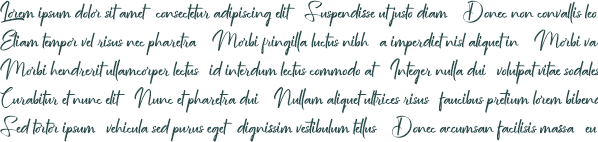 Lorem ipsum dolor sit amet consectetur adipiscing elit Suspendisse ut justo diam Donec non convallis leo
Etiam tempor vel risus nec pharetra Morbi fringilla luctus nibh a imperdiet nisl aliquet in Morbi va
Morbi hendrerit ullamcorper lectus id interdum lectus commodo at Integer nulla dui volutpat vitae sodales
Curabitur et nunc elit Nunc et pharetra dui Nullam aliquet ultrices risus faucibus pretium lorem bibend
Sed tortor ipsum vehicula sed purus eget dignissim vestibulum tellus Donec accumsan facilisis massa eu